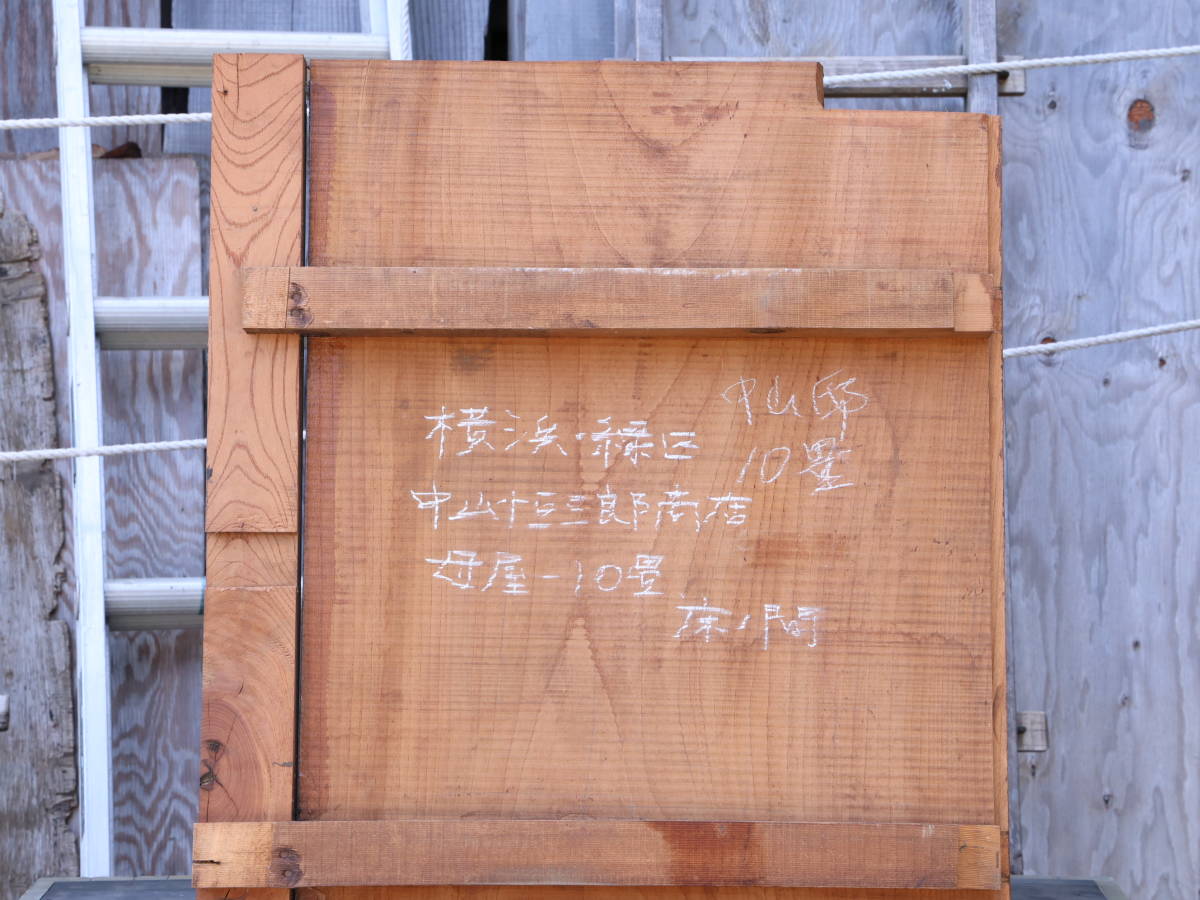 中山邸
10畳
横浜・緑区
中山十三郎商店
母屋-10畳
床ノ間